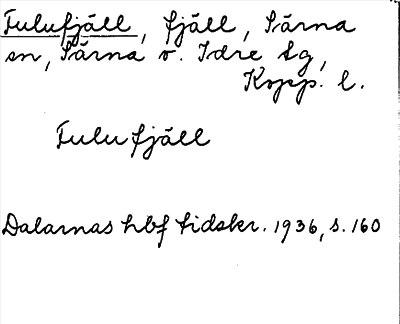 Fulufjäll, fjäll, Särna
sn, Särna o. Idre tg,
Kopp. l.
Fulufjäll
Dalarnas hbf tidskr. 1936, s. 160